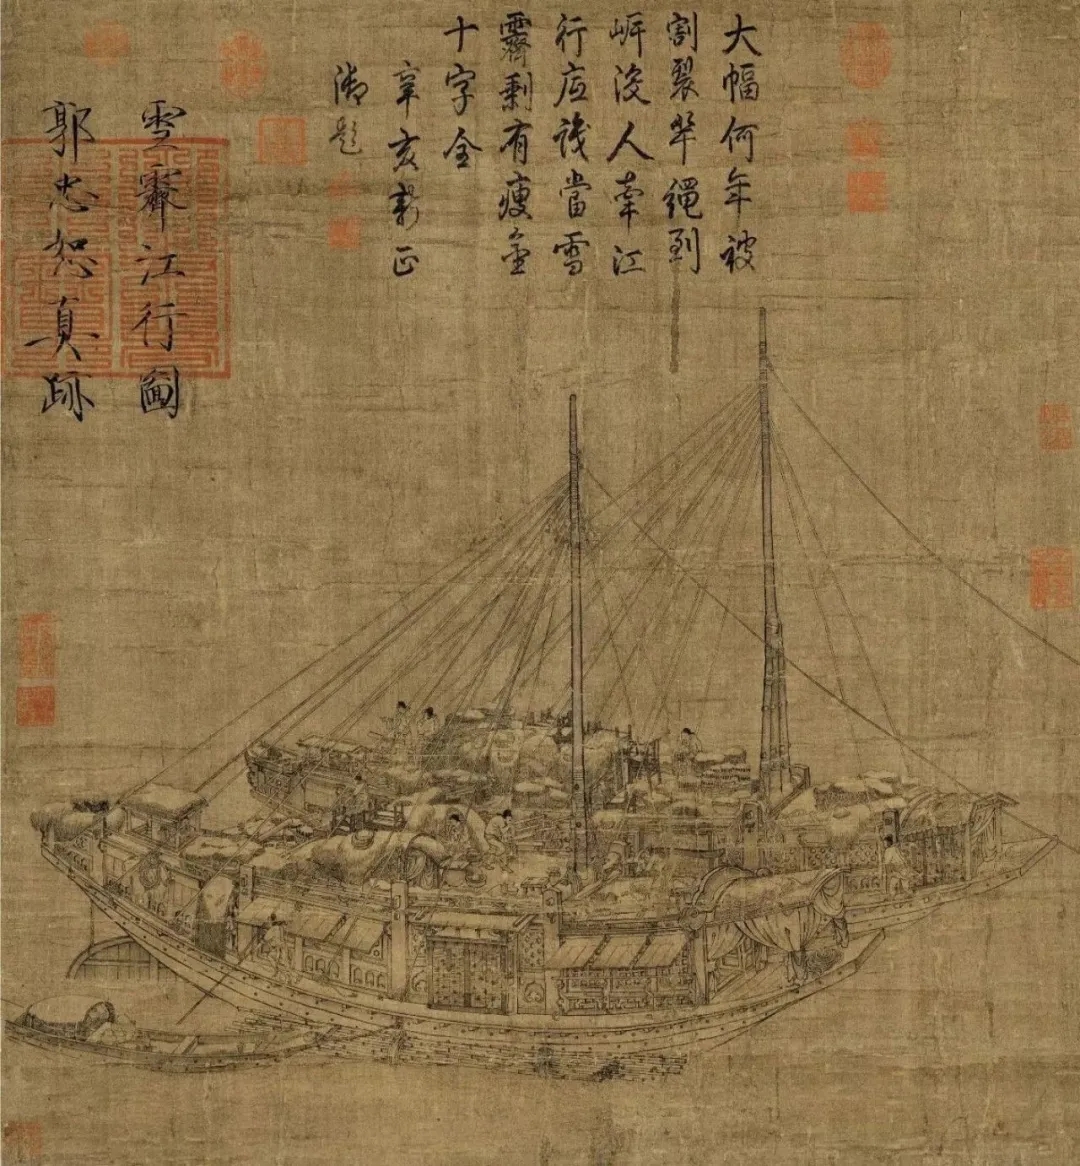 大幅何年被
割裂牽繩到
岓没人牽江
行應識當雪
霽剩有瘦金
十字全
辛亥新正
御題
雪霽江行圖
郭忠恕真跡